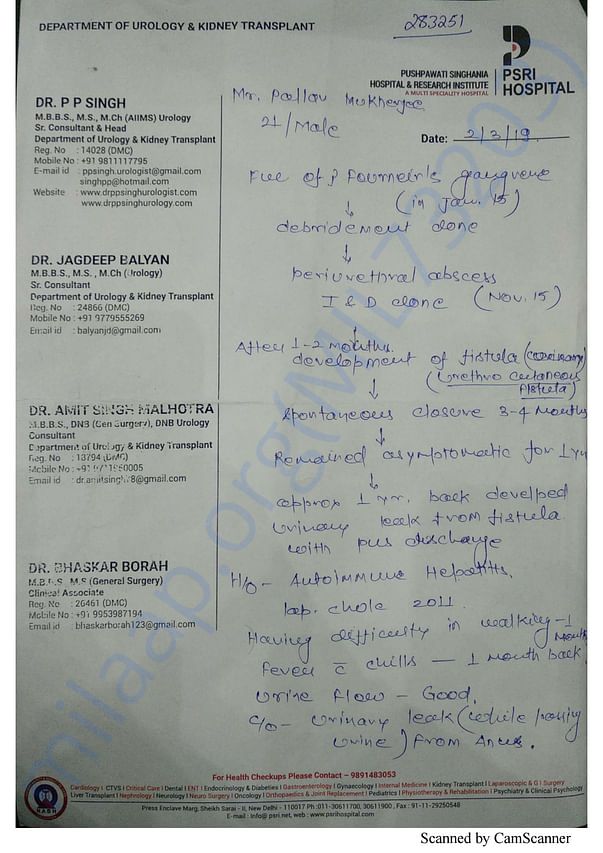 DEPARTMENT OF UROLOGY & KIDNEY TRANSPLANT
283251
PUSHPAWATI SINGHANIA
HOSPITAL & RESEARCH INSTITUTE
A MULTI SPECIALITY HOSPITAL
PSRI
HOSPITAL
DR. P P SINGH
M.B.B.S., M.S., M.Ch (AIIMS) Urology
Sr. Consultant & Head
Department of Urology & Kidney Transplant
Reg. No : 14028 (DMC)
Mobile No : +91 9811117795
E-mail id : ppsingh.urologist@gmail.com
singhpp@hotmail.com
Website : www.drppsinghurologist.com
www.drppsinghurology.com
DR. JAGDEEP BALYAN
M.B.B.S., M.S., M.Ch (Urology)
Sr. Consultant
Department of Urology & Kidney Transplant
Reg. No : 24866 (DMC)
Mobile No : +91 9779555269
Email id : balyanjd@gmail.com
DR. AMIT SINGH MALHOTRA
M.B.B.S., DNB (Gen Surgery), DNB Urology
Consultant
Department of Urology & Kidney Transplant
Reg. No : 13794 (DMC)
Mobile No :
Email id :
DR. BHASKAR BORAH
M.B.B.S, M.S (General Surgery)
Clinical Associate
Reg. No : 26461 (DMC)
Mobile No : +91 9953987194
Email id : bhaskarborah123@gmail.com
Mr. Pallav Mukherjee
21/Male
Date: 2/3/19
F/U/C of Fourneir's gangrene
(in Jan. 15)
↓
debridement done
↓
periurethral abscess
I & D done (Nov. 15)
↓
After 1-2 months
development of fistula
(Urethro cutaneous
fistula)
↓
Spontaneous closure 3-4 months
↓
Remained asymptomatic for 1 yr
↓
approx 1 yr. back develped
urinary leak from fistula
with pus discharge
H/O - Autoimmune Hepatitis.
lap. chole 2011.
Having difficulty in walking - 1 month
fever c̄ chills — 1 month back
Urine flow - Good.
C/O - Urinary leak (while passing
urine) from Anus.
milaap.org
For Health Checkups Please Contact – 9891483053
Cardiology I CTVS I Critical Care I Dental I ENT I Endocrinology & Diabeties I Gastroenterology I Gynaecology I Internal Medicine I Kidney Transplant I Laparoscopic & G I Surgery
Liver Transplant I Nephrology I Neurology I Neuro Surgery I Oncology I Orthopaedics & Joint Replacement I Pediatrics I Physiotherapy & Rehabilitation I Psychiatry & Clinical Psychology
Press Enclave Marg, Sheikh Sarai - II, New Delhi - 110017 Ph.:011-30611700, 30611900, Fax : 91-11-29250548
E-mail : info@psri.net, web : www.psrihospital.com
NABH
Scanned by CamScanner